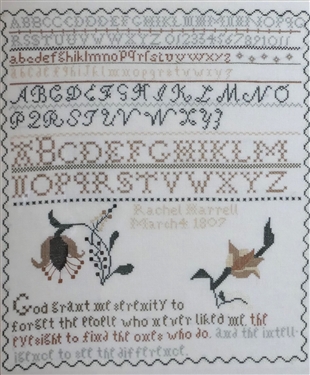 ABCDEFGHIJKLMNOPQ
RSSTUVWXYZ 01234567891011
abcdefghiklmnopqrſstuvwxyz
abcdefghi
ABCDEFGHIKLMNO
PQRSTUVWXYZ
ABCDEFGHIKLM
NOPQRSTUVWXYZ
Rachel Marrell
March 4 1807
God grant me serenity to
forget the people who never liked me. the
eyesight to find the ones who do. and the intell-
igence to see the difference.